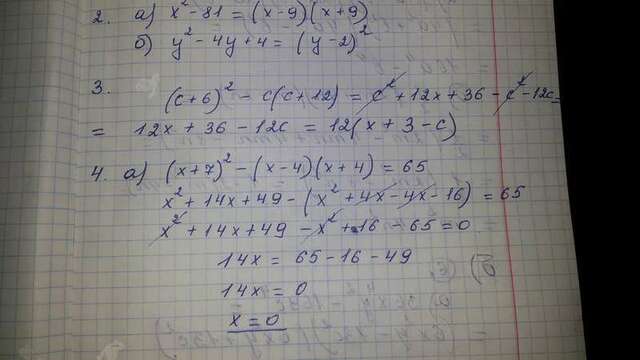 2. а) x² - 81 = (x - 9)(x + 9)
б) y² - 4y + 4 = (y - 2)²
3. (c + 6)² - c(c + 12) = c² + 12x + 36 - c² - 12c =
= 12x + 36 - 12c = 12(x + 3 - c)
4. а) (x + 7)² - (x - 4)(x + 4) = 65
x² + 14x + 49 - (x² + 4x - 4x - 16) = 65
x² + 14x + 49 - x² + 16 - 65 = 0
14x = 65 - 16 - 49
14x = 0
x = 0
б)